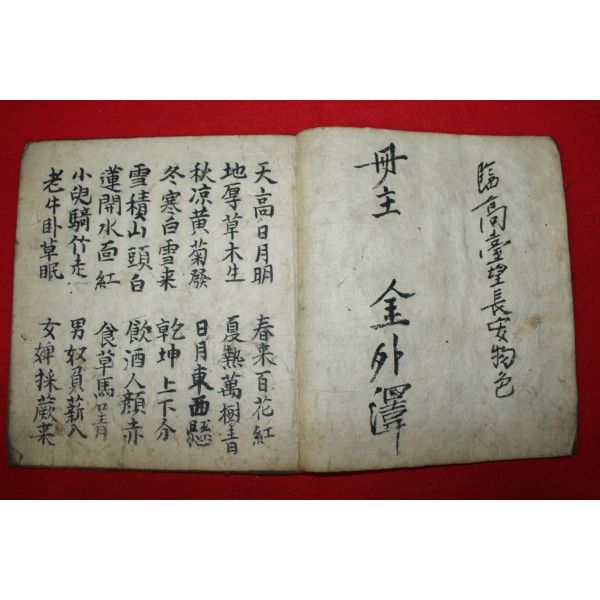 臨高臺望長安物色
冊主 金外澤
天高日月明 春来百花紅
地厚草木生 夏熱萬樹青
秋凉黄菊發 日月東西懸
冬寒白雪来 乾坤上下分
雪積山頭白 飲酒人顔赤
蓮開水面紅 食草馬口青
小兒騎竹走 男奴負薪入
老牛卧草眠 女婢採蕨来